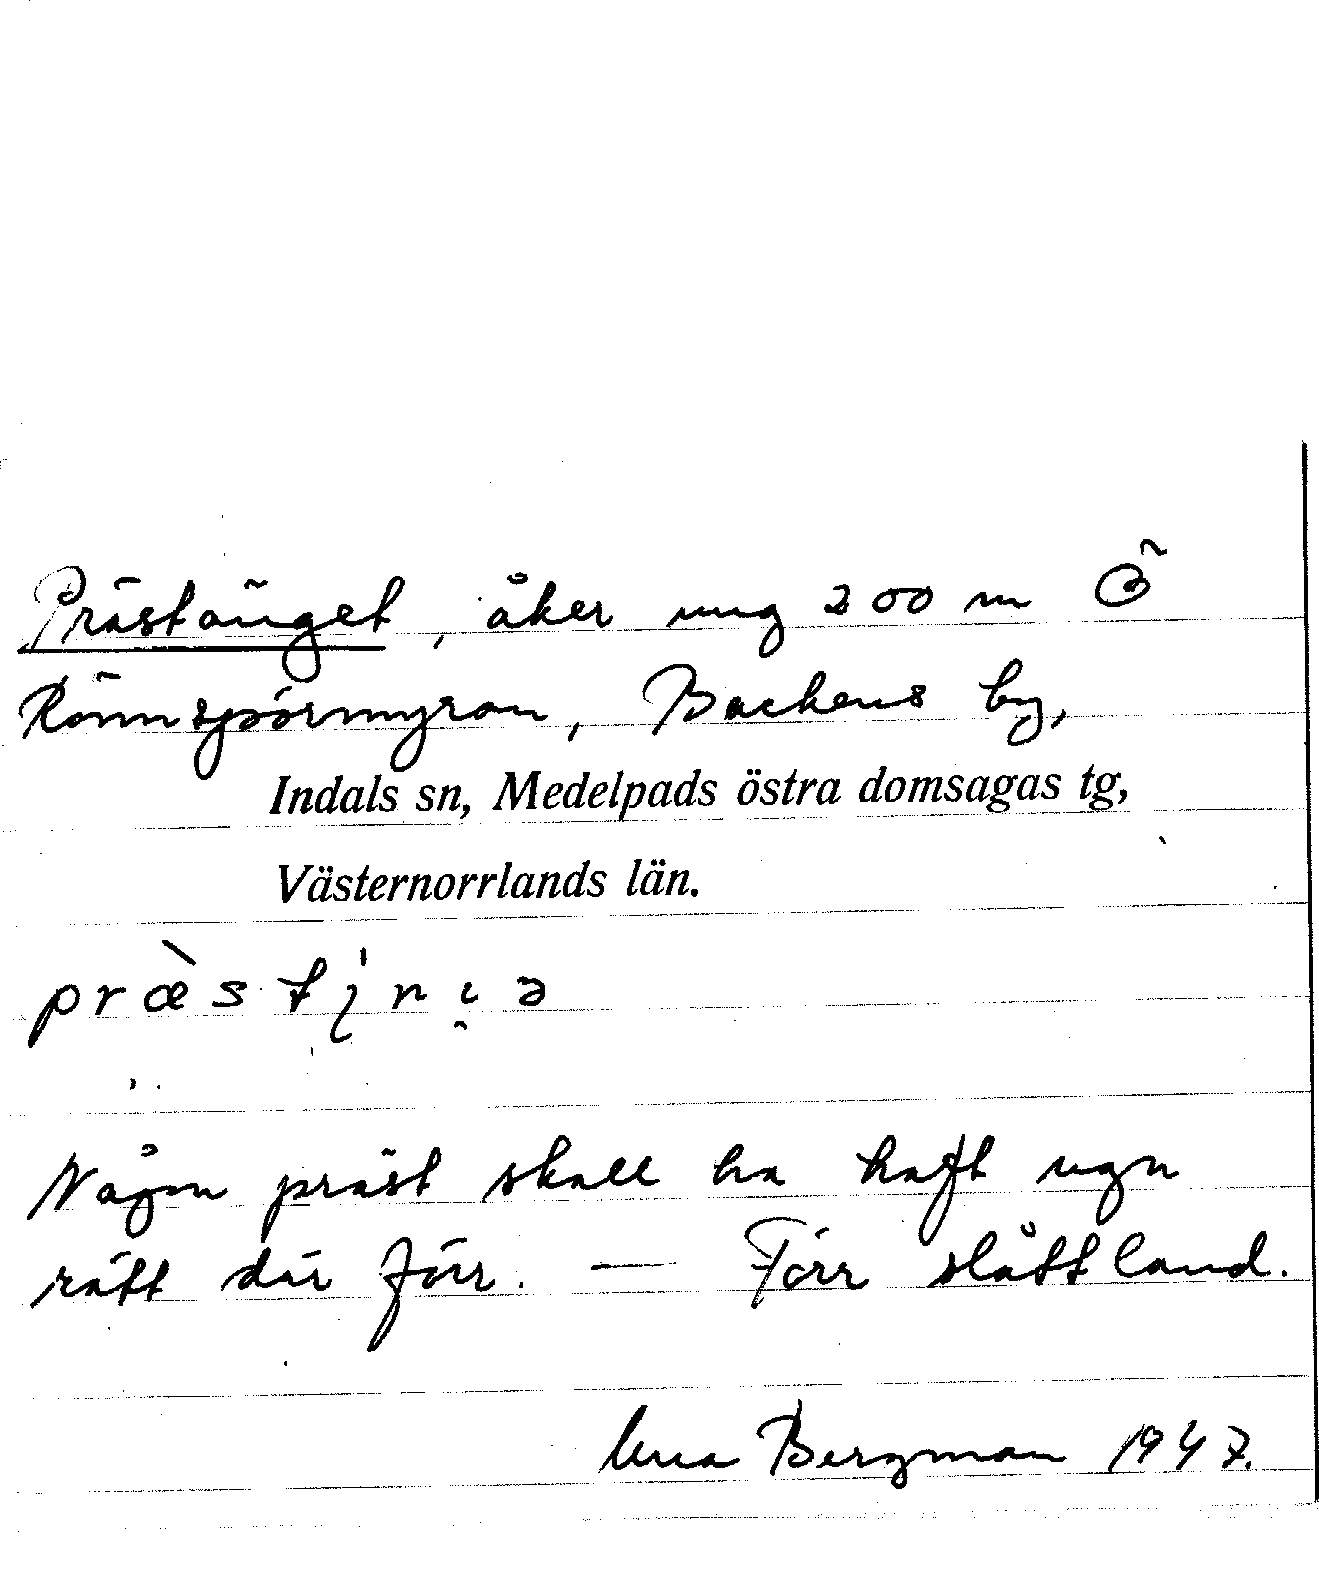 Prästänget, åker ung 200 m Ö
Rönnspörmyran, Backens by,
Indals sn, Medelpads östra domsagas tg,
Västernorrlands län.
Någon präst skall ha haft ägn
rätt där förr. — Förr slåttland.
Bergman 1947.